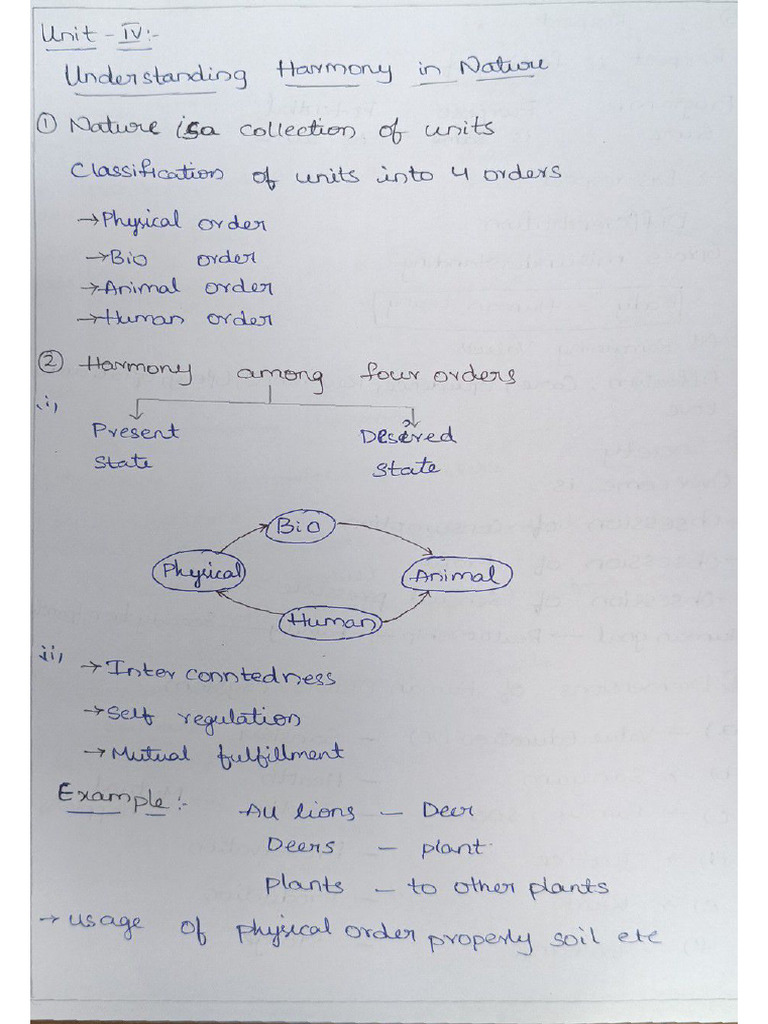 Unit - IV :-
Understanding Harmony in Nature
① Nature is a collection of units
Classification of units into 4 orders
→ Physical order
→ Bio order
→ Animal order
→ Human order
② Harmony among four orders
i,
Present State
Desired State
Bio
Physical
Animal
Human
ii, → Inter conntedness
→ Self regulation
→ Mutual fulfillment
Example :- All lions – Deer
Deers – plant
Plants – to other plants
→ usage of physical order properly soil etc